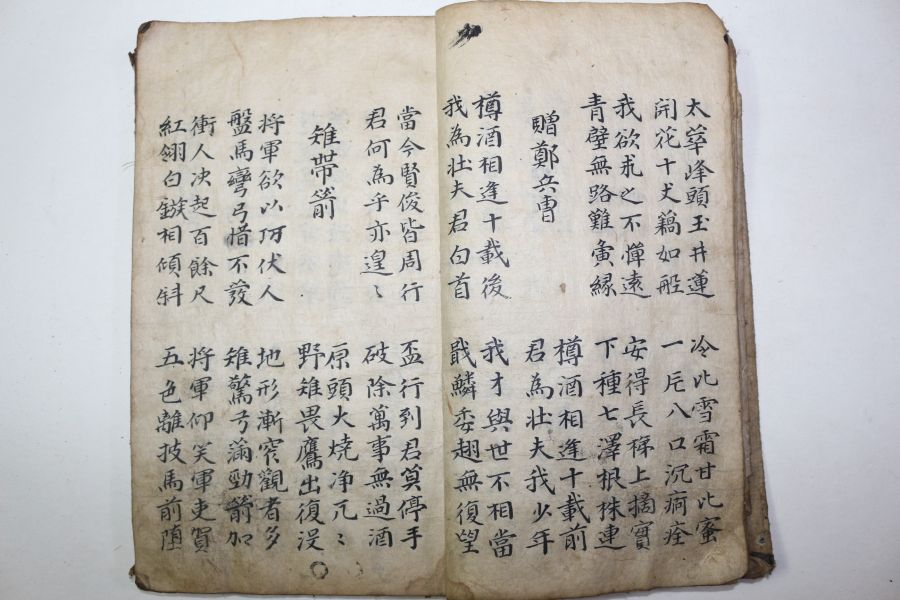 太華峰頭玉井蓮
開花十丈藕如船
冷比雪霜甘比蜜
一片入口沉痾痊
我欲求之不憚遠
青壁無路難夤緣
安得長梯上摘實
下種七澤根株連
贈鄭兵曹
樽酒相逢十載前
君為壮夫我少年
樽酒相逢十載後
我為壮夫君白首
我才與世不相當
戢鱗委翅無復望
當今賢俊皆周行
君何為乎亦遑〻
盃行到君莫停手
破除萬事無過酒
雉帶箭
原頭火燒净兀〻
野雉畏鷹出復没
将軍欲以巧伏人
盤馬彎弓惜不發
地形漸窄觀者多
雉驚弓滿勁箭加
衝人决起百餘尺
紅翎白鏃相傾斜
将軍仰笑軍吏賀
五色離披馬前堕